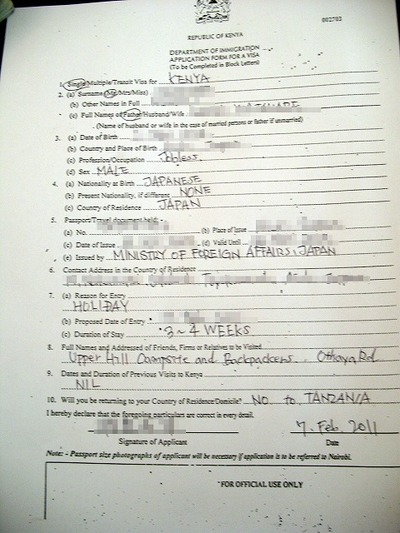 002703
REPUBLIC OF KENYA
DEPARTMENT OF IMMIGRATION
APPLICATION FORM FOR A VISA
(To be Completed in Block Letters)
1. Single/Multiple/Transit Visa for KENYA
2. (a) Surname (Mr/Mrs/Miss)
(b) Other Names in Full
(c) Full Names of Father/Husband/Wife
(Name of husband or wife in the case of married persons or father if unmarried)
3. (a) Date of Birth
(b) Country and Place of Birth
(c) Profession/Occupation Jobless.
(d) Sex MALE
4. (a) Nationality at Birth JAPANESE
(b) Present Nationality, if different NONE
(c) Country of Residence JAPAN
5. Passport/Travel document held:-
(a) No. (b) Place of Issue
(c) Date of Issue (d) Valid Until
(e) Issued by MINISTRY OF FOREIGN AFFAIRS, JAPAN
6. Contact Address in the Country of Residence
7. (a) Reason for Entry
HOLIDAY
(b) Proposed Date of Entry
(c) Duration of Stay 3~4 WEEKS
8. Full Names and Addressed of Friends, Firms or Relatives to be Visited
Upper Hill Campsite and Backpackers. Othaya Rd.
9. Dates and Duration of Previous Visits to Kenya
NIL
10. Will you be returning to your Country of Residence/Domicile? NO. to TANZANIA
I hereby declare that the foregoing particulars are correct in every detail.
7. Feb. 2011
Signature of Applicant Date
Note: - Passport size photographs of applicant will be necessary if application is to be referred to Nairobi.
*FOR OFFICIAL USE ONLY